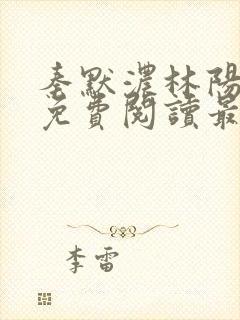 秦默濃林陽
免費閱讀最
李雷